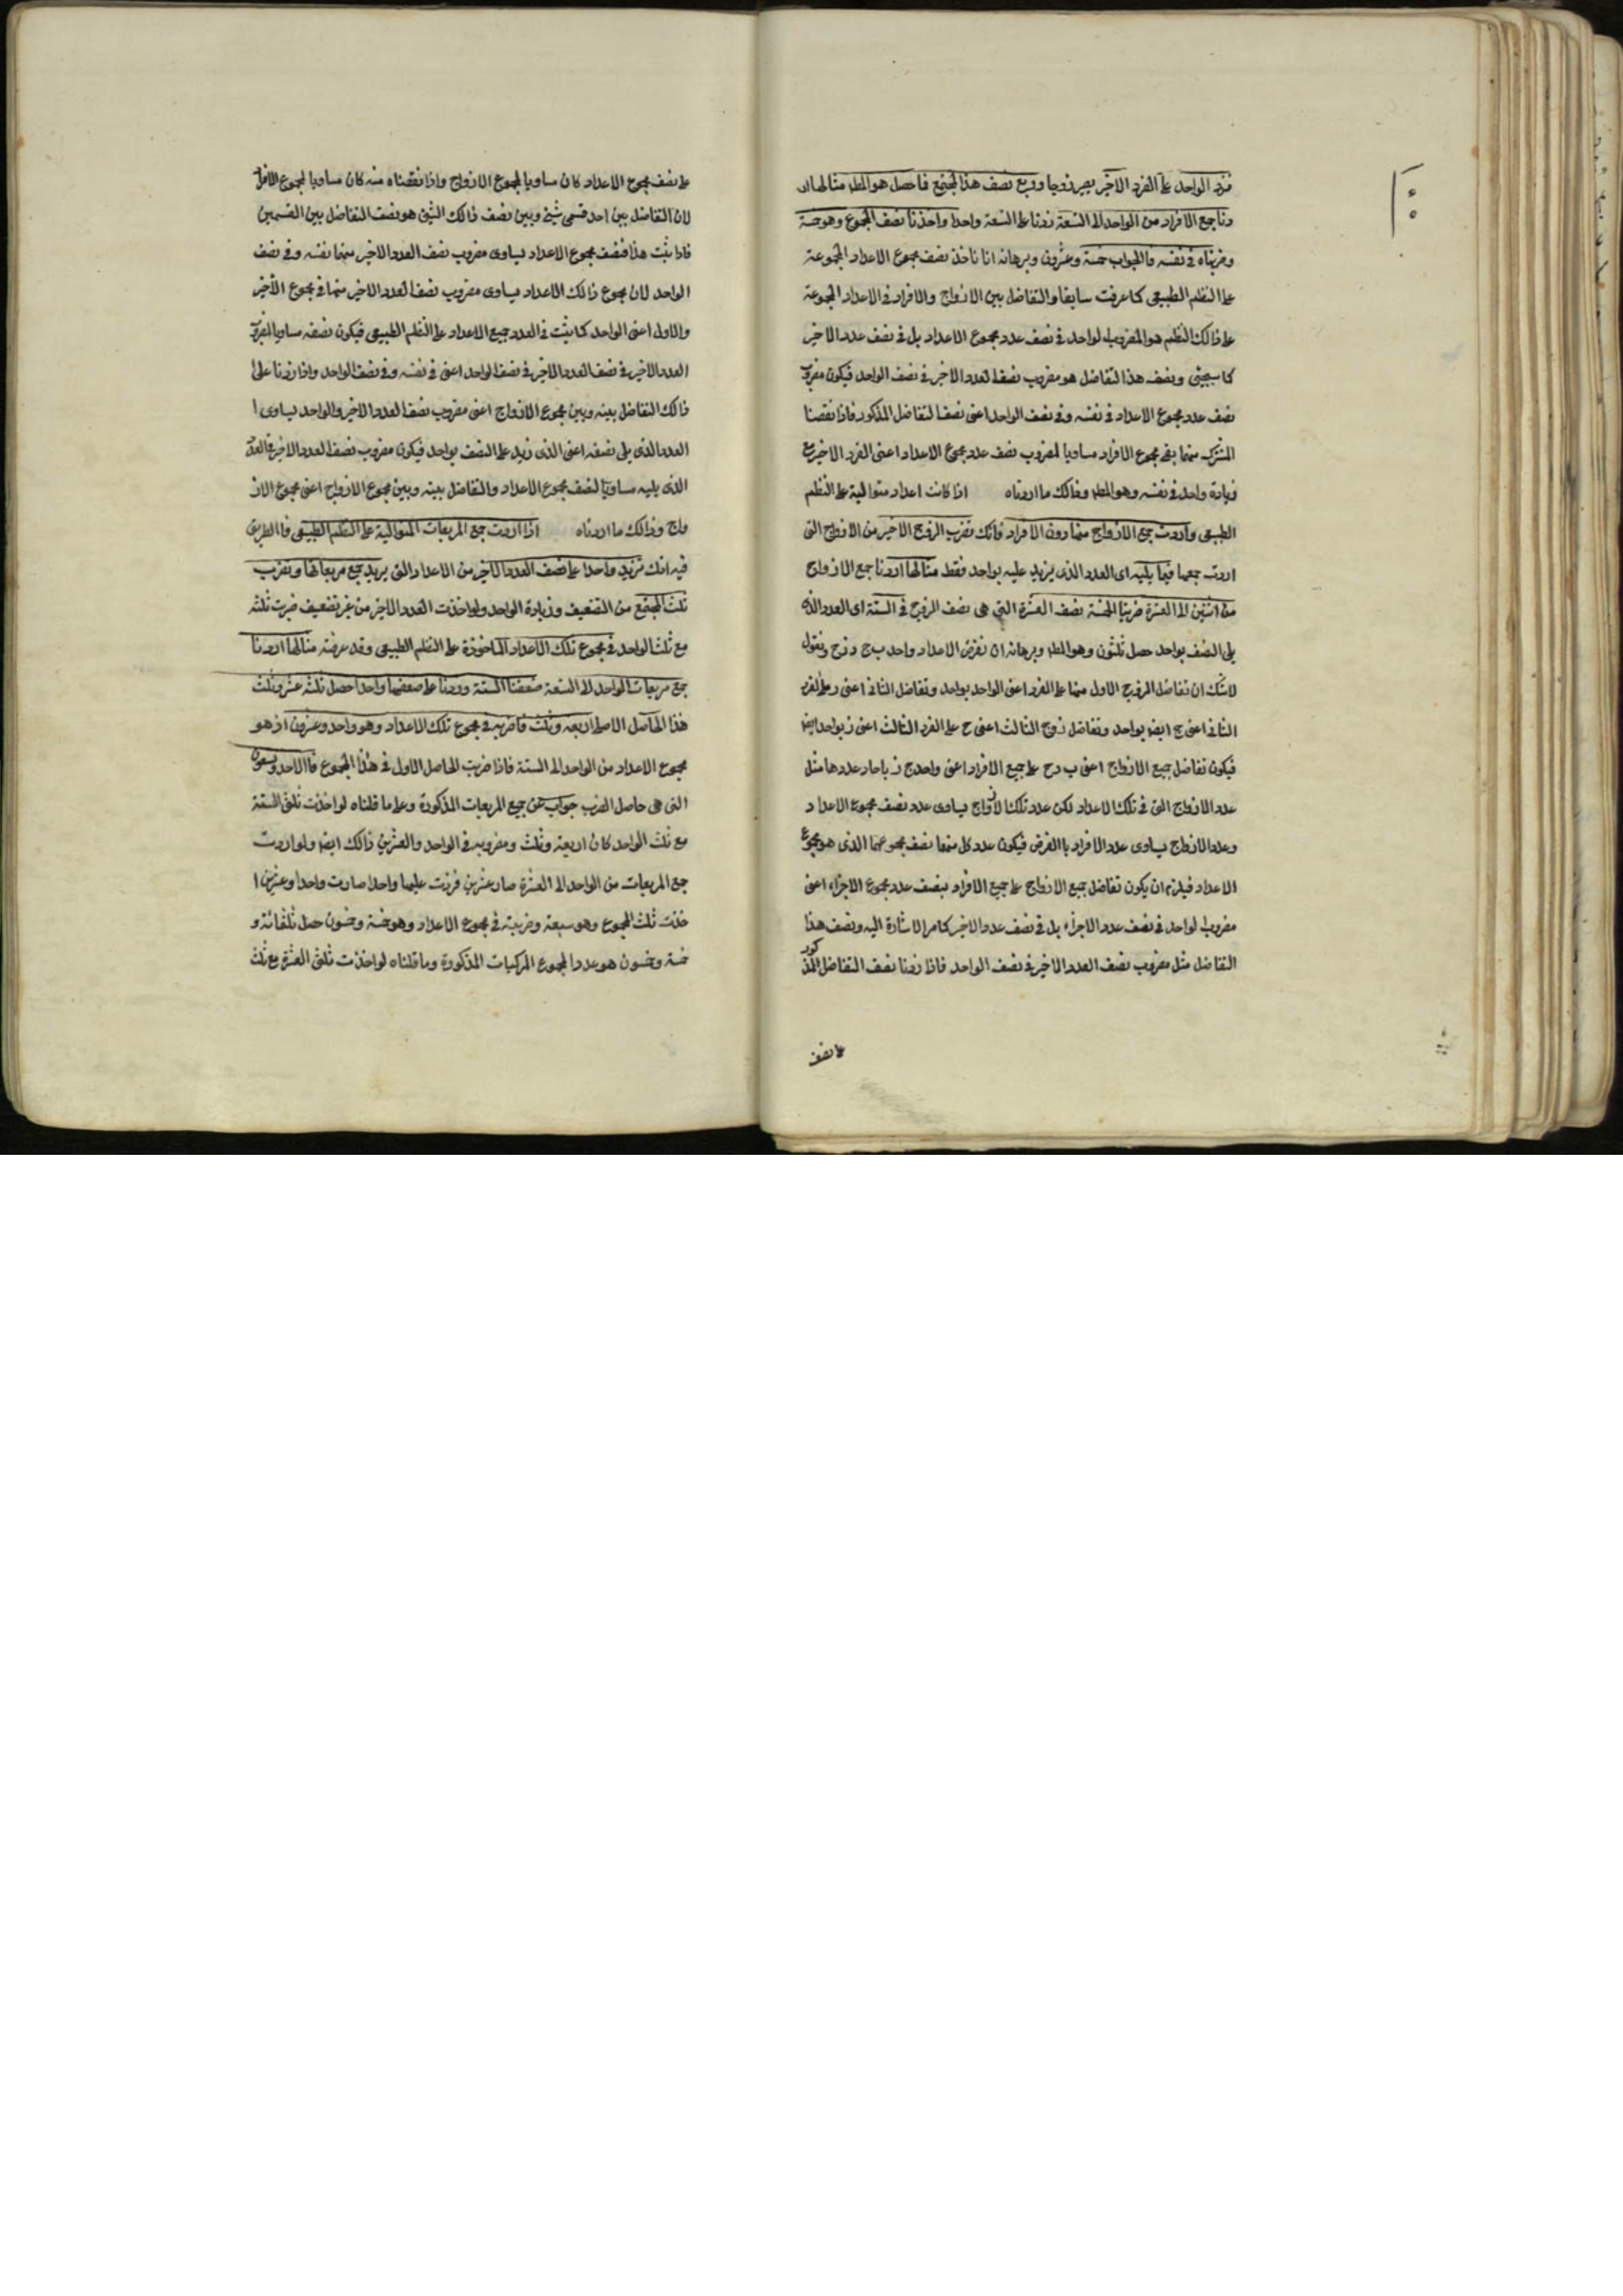 فزد الواحد على الفرد الاخير يصير زوجا وربع نصف هذا المجتمع فما حصل هو المط مثالها ارد
ونا جمع الافراد من الواحد الى التسعة زدنا على التسعة واحدا واخذنا نصف المجموع وهو خمسة
وضربناه فى نفسه فالجواب خمسة وعشرون وبرهانه انا ناخذ نصف مجموع الاعداد المجموعة
على النظم الطبيعى كما عرفت سابقا والتفاضل بين الازواج والافراد فى الاعداد المجموعة
على ذالك النظم هو المضروب لواحد فى نصف عدد مجموع الاعداد بل فى نصف عدد الاخير
كا سيجيئ ونصف هذا التفاضل هو مضروب نصف العدد الاخير فى نصف الواحد فيكون مضروب
نصف عدد مجموع الاعداد فى نفسه وفى نصف الواحد اعنى نصف التفاضل المذكور فاذا نقصنا
المشترك منهما بقى مجموع الافراد مساويا لمضروب نصف عدد مجموع الاعداد اعنى الفرد الاخير مع
زيادة واحد فى نفسه وهو المط وذالك ما اردناه اذا كانت اعداد متوالية على النظم
الطبيعى واردت جمع الازواج منها دون الافراد فانك تضرب الزوج الاخير من الازواج التى
اردت جمعها فيما يليه اى العدد الذى يزيد عليه بواحد فقط مثالها اردنا جمع الازواج
من اثنين الى العشرة ضربنا الخمسة نصف العشرة التى هى نصف الزوج فى الستة اى العدد الذى
يلى النصف بواحد حصل ثلثون وهو المط وبرهانه ان نفرض الاعداد واحد ب ج د ز ح ونقول
لاشك ان تفاضل الزوج الاول منها على الفرد اعنى الواحد بواحد وتفاضل الثانى اعنى د على الفرد
الثانى اعنى ج ايضا بواحد وتفاضل زوج الثالث اعنى ح على الفرد الثالث اعنى ز بواحد ايضا
فيكون تفاضل جميع الازواج اعنى ب د ح على جميع الافراد اعنى واحد ج ز باحاد عددها مثل
عدد الازواج التى فى تلك الاعداد لكن عدد تلك الازواج يساوى عدد نصف مجموع الاعداد
وعدد الازواج يساوى عدد الافراد باالفرض فيكون عدد كل منهما نصف مجموعهما الذى هو مجموع
الاعداد فيلزم ان يكون تفاضل جميع الازواج على جميع الافراد بنصف عدد مجموع الاجزاء اعنى
مضروب لواحد فى نصف عدد الاجزاء بل فى نصف عدد الاخير كما مر الاشارة اليه ونصف هذا
التفاضل مثل مضروب نصف العدد الاخير فى نصف الواحد فاذا زدنا نصف التفاضل المذكور
على نصف
على نصف مجموع الاعداد كان مساويا لمجموع الازواج واذا نقصناه منه كان مساويا لمجموع الافراد
لان التفاضل بين احد قسمى شيئ وبين نصف ذالك الشيئ هو نصف التفاضل بين القسمين
فاذا ثبت هذا فنصف مجموع الاعداد يساوى مضروب نصف العدد الاخير منهما نفسه وفى نصف
الواحد لان مجموع ذالك الاعداد يساوى مضروب نصف العدد الاخير منها فى مجموع الاخير
والاول اعنى الواحد كما يثبت فى العدد جميع الاعداد على النظم الطبيعى فيكون نصفه مساويا لمضروب
العدد الاخير فى نصف العدد الاخير فى نصف الواحد اعنى فى نفسه وفى نصف الواحد واذا زدنا على ا
ذالك التفاضل بينه وبين مجموع الازواج اعنى مضروب نصف العدد الاخير والواحد يساوى ا
العدد الذى يلى نصفه اعنى الذى زيد على النصف بواحد فيكون مضروب نصف العدد الاخير فى العدد
الذى يليه مساويا لنصف مجموع الاعداد والتفاضل بينه وبين مجموع الازواج اعنى مجموع الاز
واج وذالك ما اردناه اذا اردت جمع المربعات المتوالية على النظم الطبيعى فاالطريق
فيه انك تزيد واحدا على ضعف العدد الاخير من الاعداد التى يريد جمع مربعاتها وتضرب
ثلث المجتمع من التضعيف وزيادة الواحد ولو اخذت العدد الاخير من غير تضعيف ضربت ثلثه
مع ثلث الواحد فى مجموع تلك الاعداد الماخوذة على النظم الطبيعى وقد عرفته مثالها اردنا
جمع مربعات الواحد الى الستة ضعفنا الستة وزدنا على ضعفها واحدا حصل ثلثة عشر وثلث
هذا الحاصل الاصل اربعه وثلث فاضربه فى مجموع تلك الاعداد وهو واحد وعشرون اذ هو
مجموع الاعداد من الواحد الى الستة فاذا ضرب الحاصل الاول فى هذا المجموع فاالاحد وتسعون
التى هى حاصل الضرب جواب عن جمع المربعات المذكورة وعلى ما قلناه لو اخذت ثلثى الستة
مع ثلث الواحد كان اربعة وثلث ومضروبه فى الواحد والعشرين ذالك ايضا ولو اردت
جمع المربعات من الواحد الى العشرة صار عشرين فزدت عليها واحدا صارت واحدا وعشرين ا
خذت ثلث المجموع وهو سبعة وضربته فى مجموع الاعداد وهو خمسة وخمسون حصل ثلثمائة و
خمسة وخمسون هو عدد المجموع المركبات المذكورة وما قلناه لو اخذت ثلثى العشرة مع ثلث